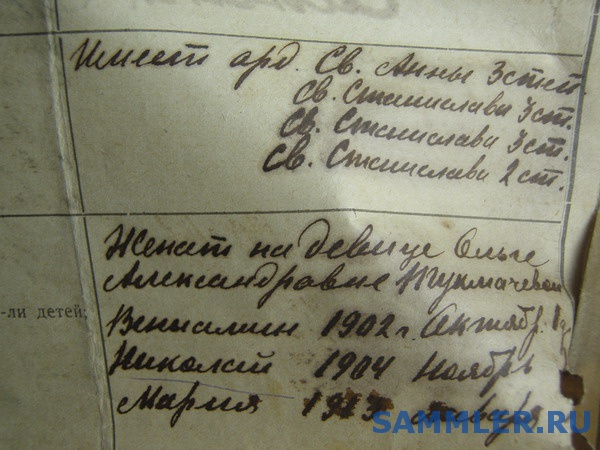 Имеет орд. Св. Анны 3 степ
Св. Станислава 3 ст.
Св. Станислава 3 ст.
Св. Станислава 2 ст.
Женат на девице Ольге
Александровне Тукмачевой
-ли детей:
Вениамин 1902 г. Октябр.
Николай 1904 Ноябрь
Мария 1913
SAMMLER.RU